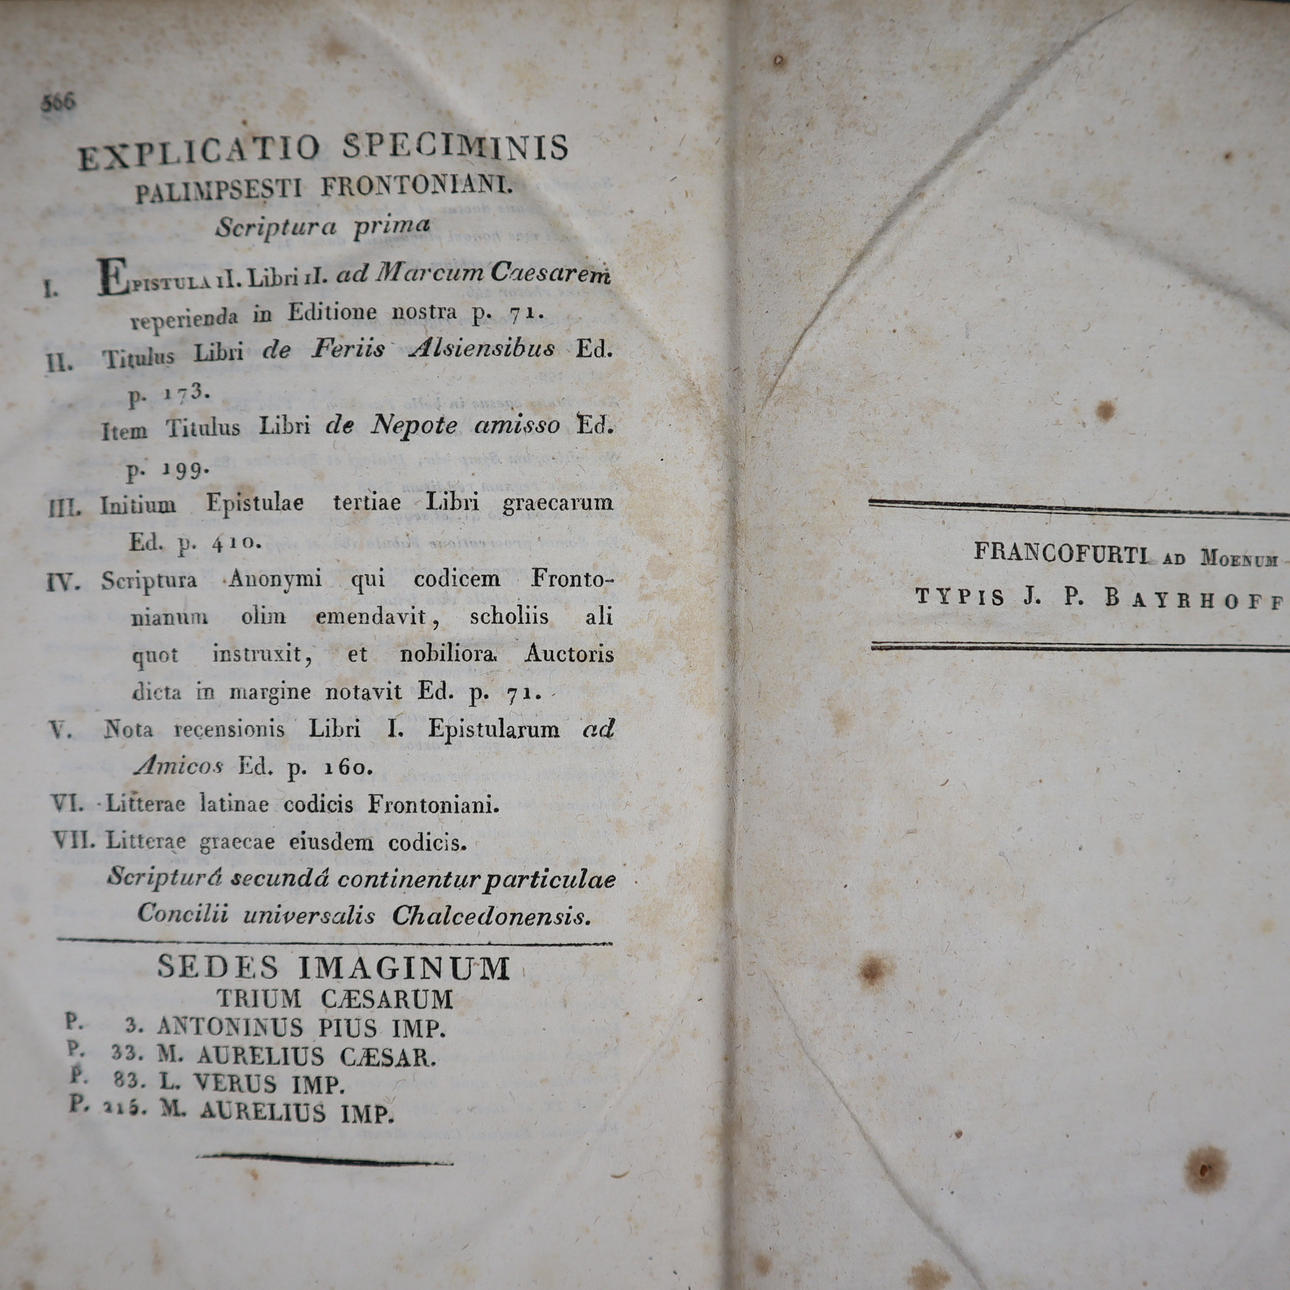 566
EXPLICATIO SPECIMINIS
PALIMPSESTI FRONTONIANI.
Scriptura prima
I. EPISTULA II. Libri II. ad Marcum Caesarem
reperienda in Editione nostra p. 71.
II. Titulus Libri de Feriis Alsiensibus Ed.
p. 173.
Item Titulus Libri de Nepote amisso Ed.
p. 199.
III. Initium Epistulae tertiae Libri graecarum
Ed. p. 410.
IV. Scriptura Anonymi qui codicem Fronto-
nianum olim emendavit, scholiis ali
quot instruxit, et nobiliora Auctoris
dicta in margine notavit Ed. p. 71.
V. Nota recensionis Libri I. Epistularum ad
Amicos Ed. p. 160.
VI. Litterae latinae codicis Frontoniani.
VII. Litterae graecae eiusdem codicis.
Scripturá secundá continentur particulae
Concilii universalis Chalcedonensis.
SEDES IMAGINUM
TRIUM CÆSARUM
P. 3. ANTONINUS PIUS IMP.
P. 33. M. AURELIUS CÆSAR.
P. 83. L. VERUS IMP.
P. 215. M. AURELIUS IMP.
FRANCOFURTI AD MOENUM
TYPIS J. P. BAYRHOFF